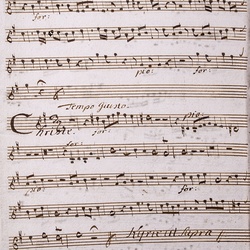 for:
pio: for:
Tempo Giusto.
Christe. for: pio:
for:
pio: for:
Kyrie ut supra